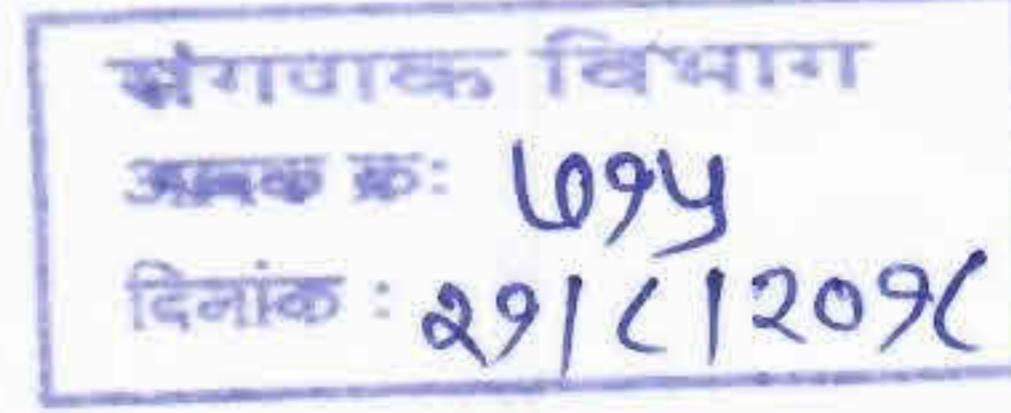 संगणक विभाग
आवक क्र: ७१५
दिनांक : २१/८/२०१८